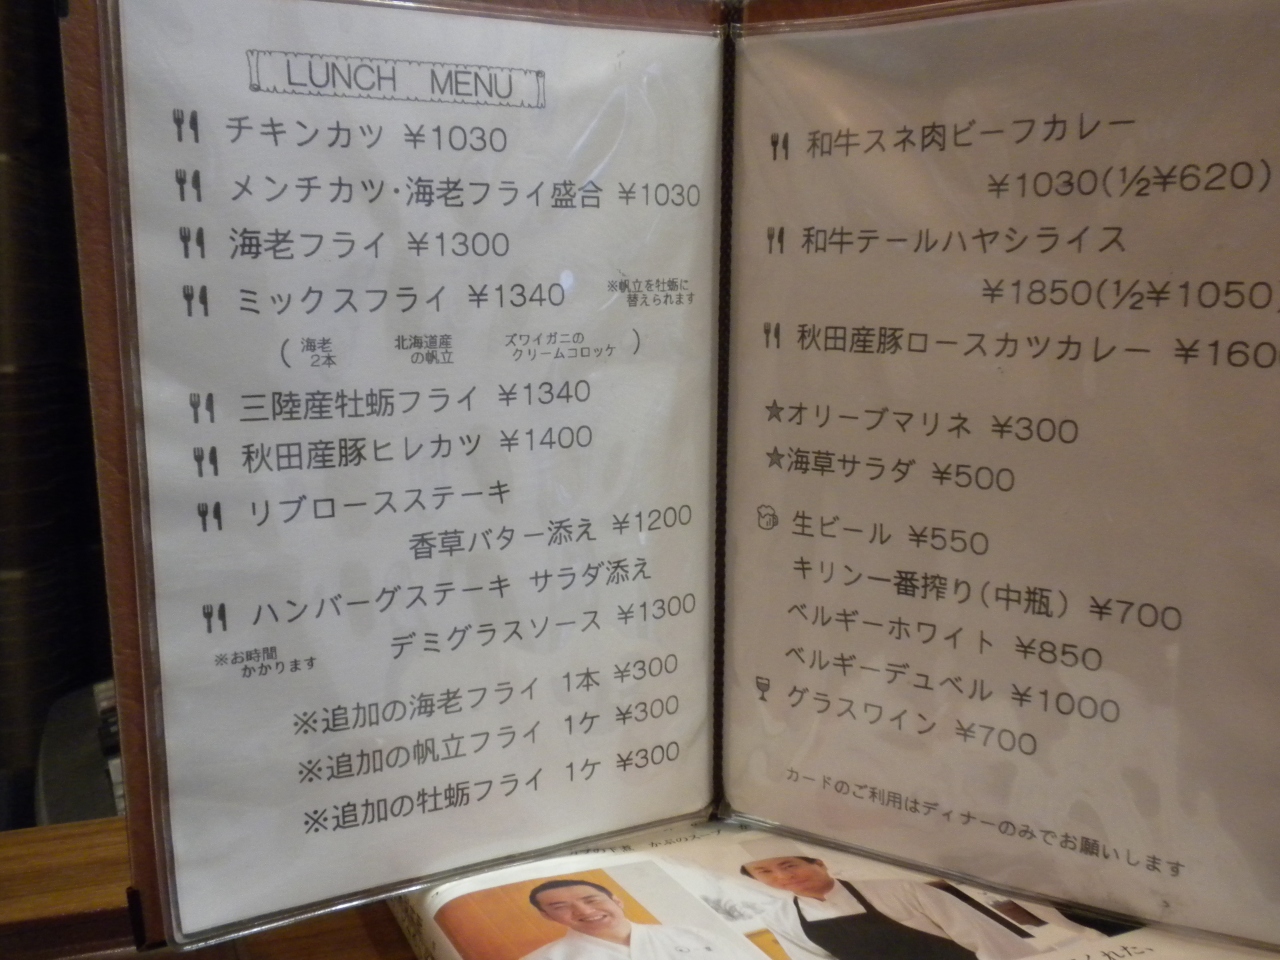 LUNCH MENU
チキンカツ ¥1030
メンチカツ・海老フライ盛合 ¥1030
海老フライ ¥1300
ミックスフライ ¥1340
※帆立を牡蛎に
替えられます
(海老
2本
北海道産
の帆立
ズワイガニの
クリームコロッケ)
三陸産牡蛎フライ ¥1340
秋田産豚ヒレカツ ¥1400
リブロースステーキ
香草バター添え ¥1200
ハンバーグステーキ サラダ添え
デミグラスソース ¥1300
※お時間
かかります
※追加の海老フライ 1本 ¥300
※追加の帆立フライ 1ケ ¥300
※追加の牡蛎フライ 1ケ ¥300
和牛スネ肉ビーフカレー
¥1030(½¥620)
和牛テールハヤシライス
¥1850(½¥1050)
秋田産豚ロースカツカレー ¥160
★オリーブマリネ ¥300
★海草サラダ ¥500
生ビール ¥550
キリン一番搾り(中瓶) ¥700
ベルギーホワイト ¥850
ベルギーデュベル ¥1000
グラスワイン ¥700
カードのご利用はディナーのみでお願いします